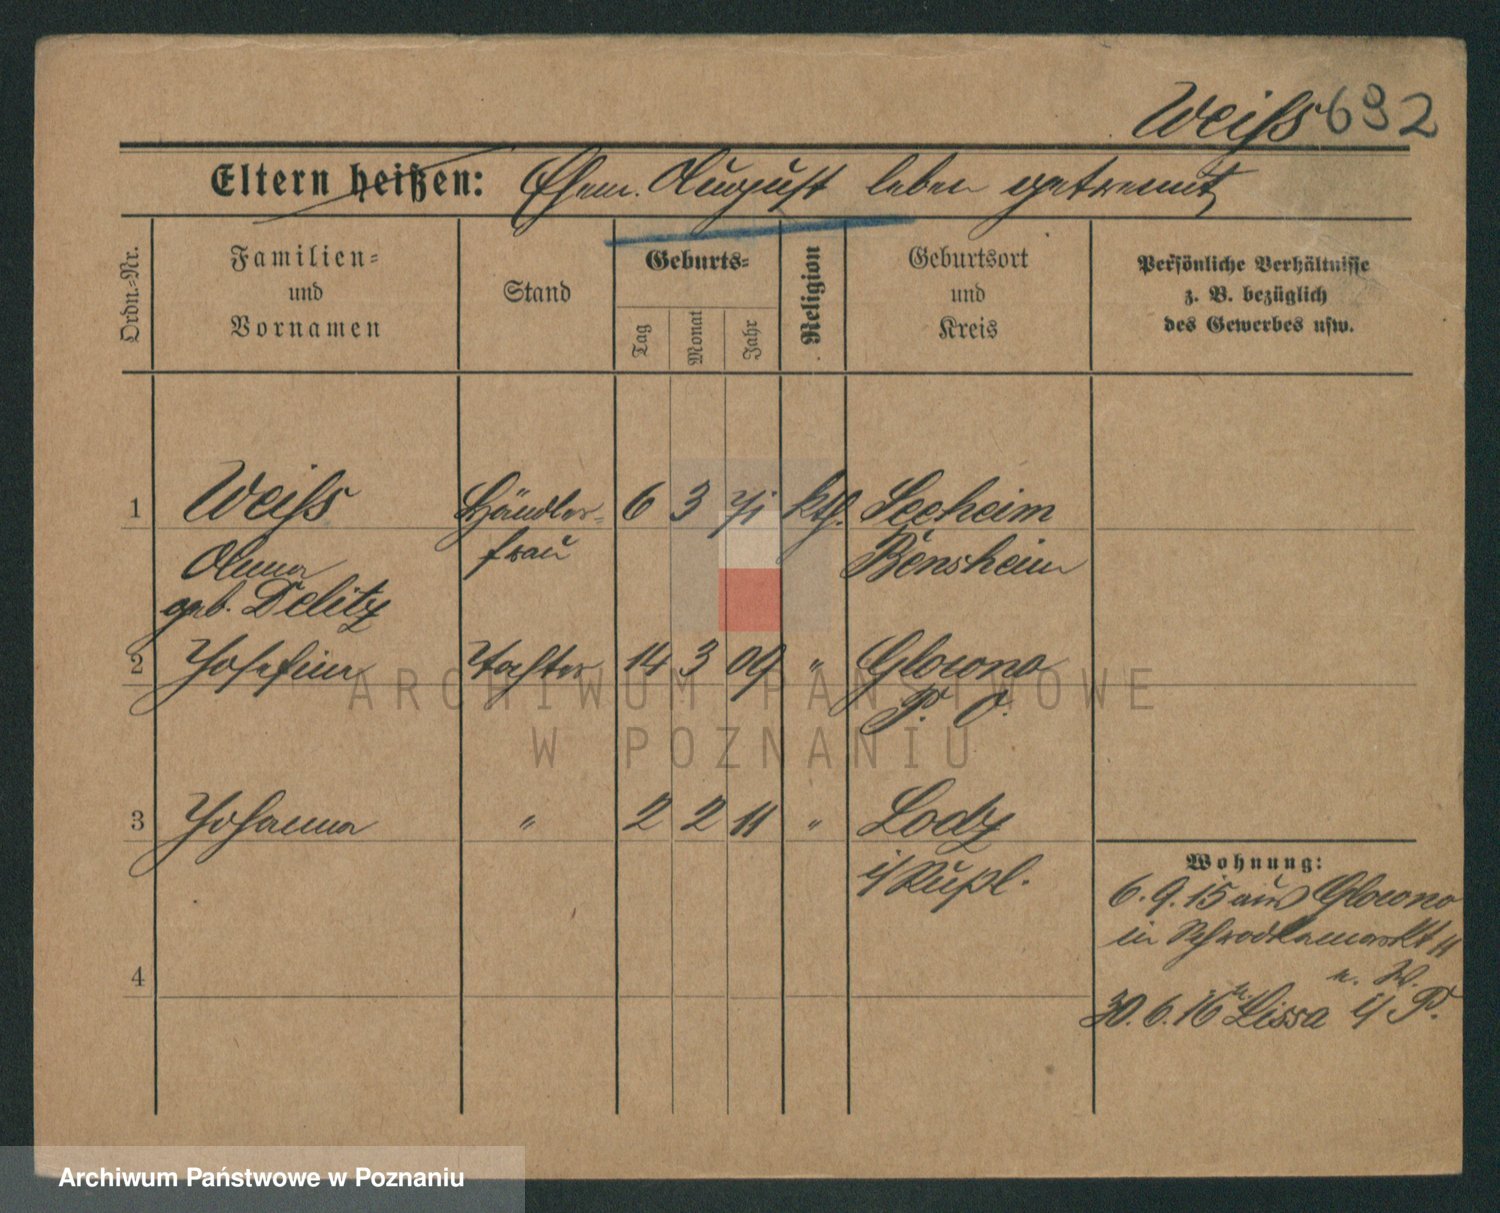 Weiſs 692
Eltern heißen: Ehem. August leben getrennt
Ordn.-Nr.
Familien-
und
Vornamen
Stand
Geburts-
Tag
Monat
Jahr
Religion
Geburtsort
und
Kreis
Persönliche Verhältnisse
z. B. bezüglich
des Gewerbes usw.
1 Weiſs Händler- 6 3 71 kth. Seeheim
Anna frau Bensheim
geb. Delitz
2 Josefina Tochter 14 3 09 " Glowno
P. O.
3 Johanna " 2 2 11 " Lodz
i/ Rußl.
4
Wohnung:
6. 9. 15 aus Glowno
in Schrodkamarkt 11
30. 6. 16 n. Lissa i/ P.
ARCHIWUM PAŃSTWOWE
W POZNANIU
Archiwum Państwowe w Poznaniu